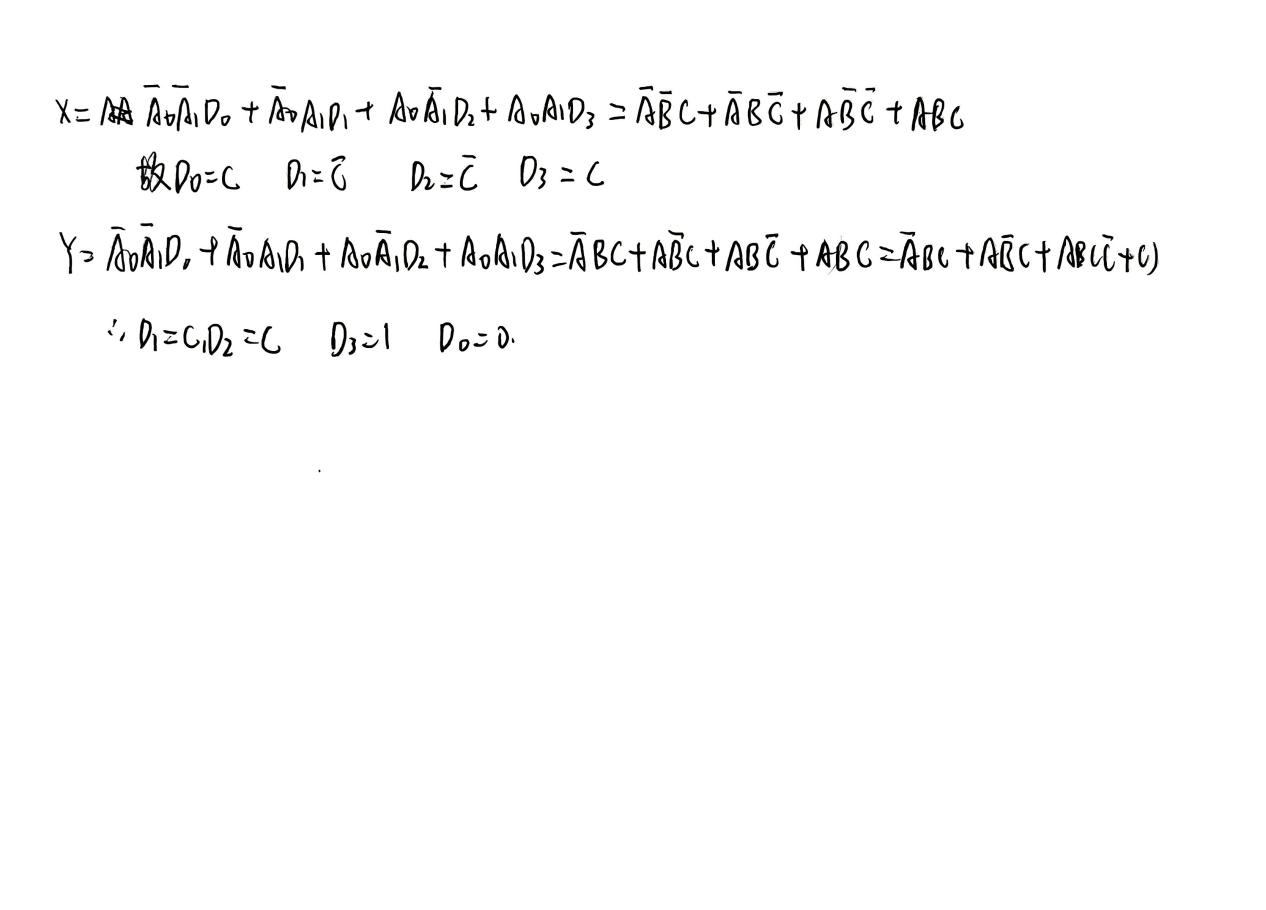 X= A̅₀A̅₁D₀ + A̅₀A₁D₁ + A₀A̅₁D₂ + A₀A₁D₃ = A̅B̅C + A̅BC̅ + AB̅C̅ + ABC
故D₀=C D₁=C̅ D₂=C̅ D₃=C
Y= A̅₀A̅₁D₀ + A̅₀A₁D₁ + A₀A̅₁D₂ + A₀A₁D₃ = A̅BC + AB̅C + ABC̅ + ABC = A̅BC + AB̅C + AB(C̅+C)
∴ D₁=C, D₂=C D₃=1 D₀=0.